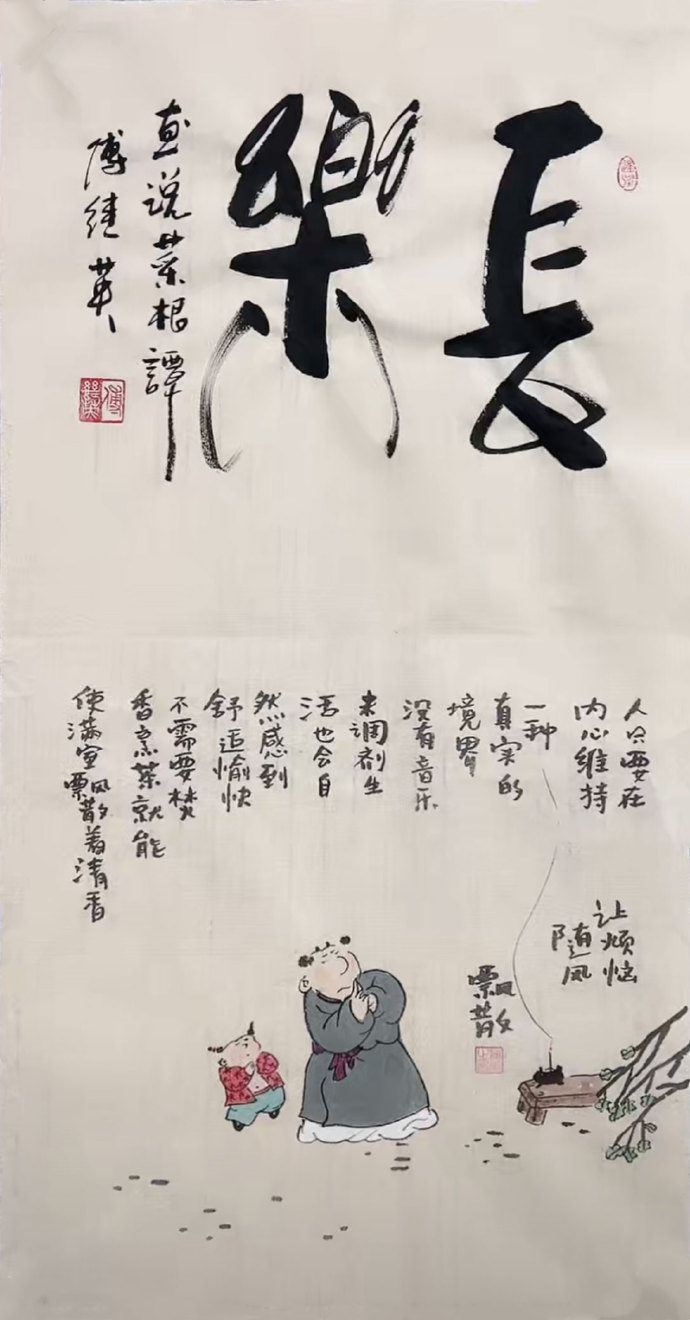 長樂
直说菜根譚
傅继英
人只要在
内心维持
一种
真实的
境界
没有音乐
来调剂生
活也会自
然感到
舒适愉快
不需要焚
香烹茶就能
使满室飘散着清香
让烦恼
随风
飘散